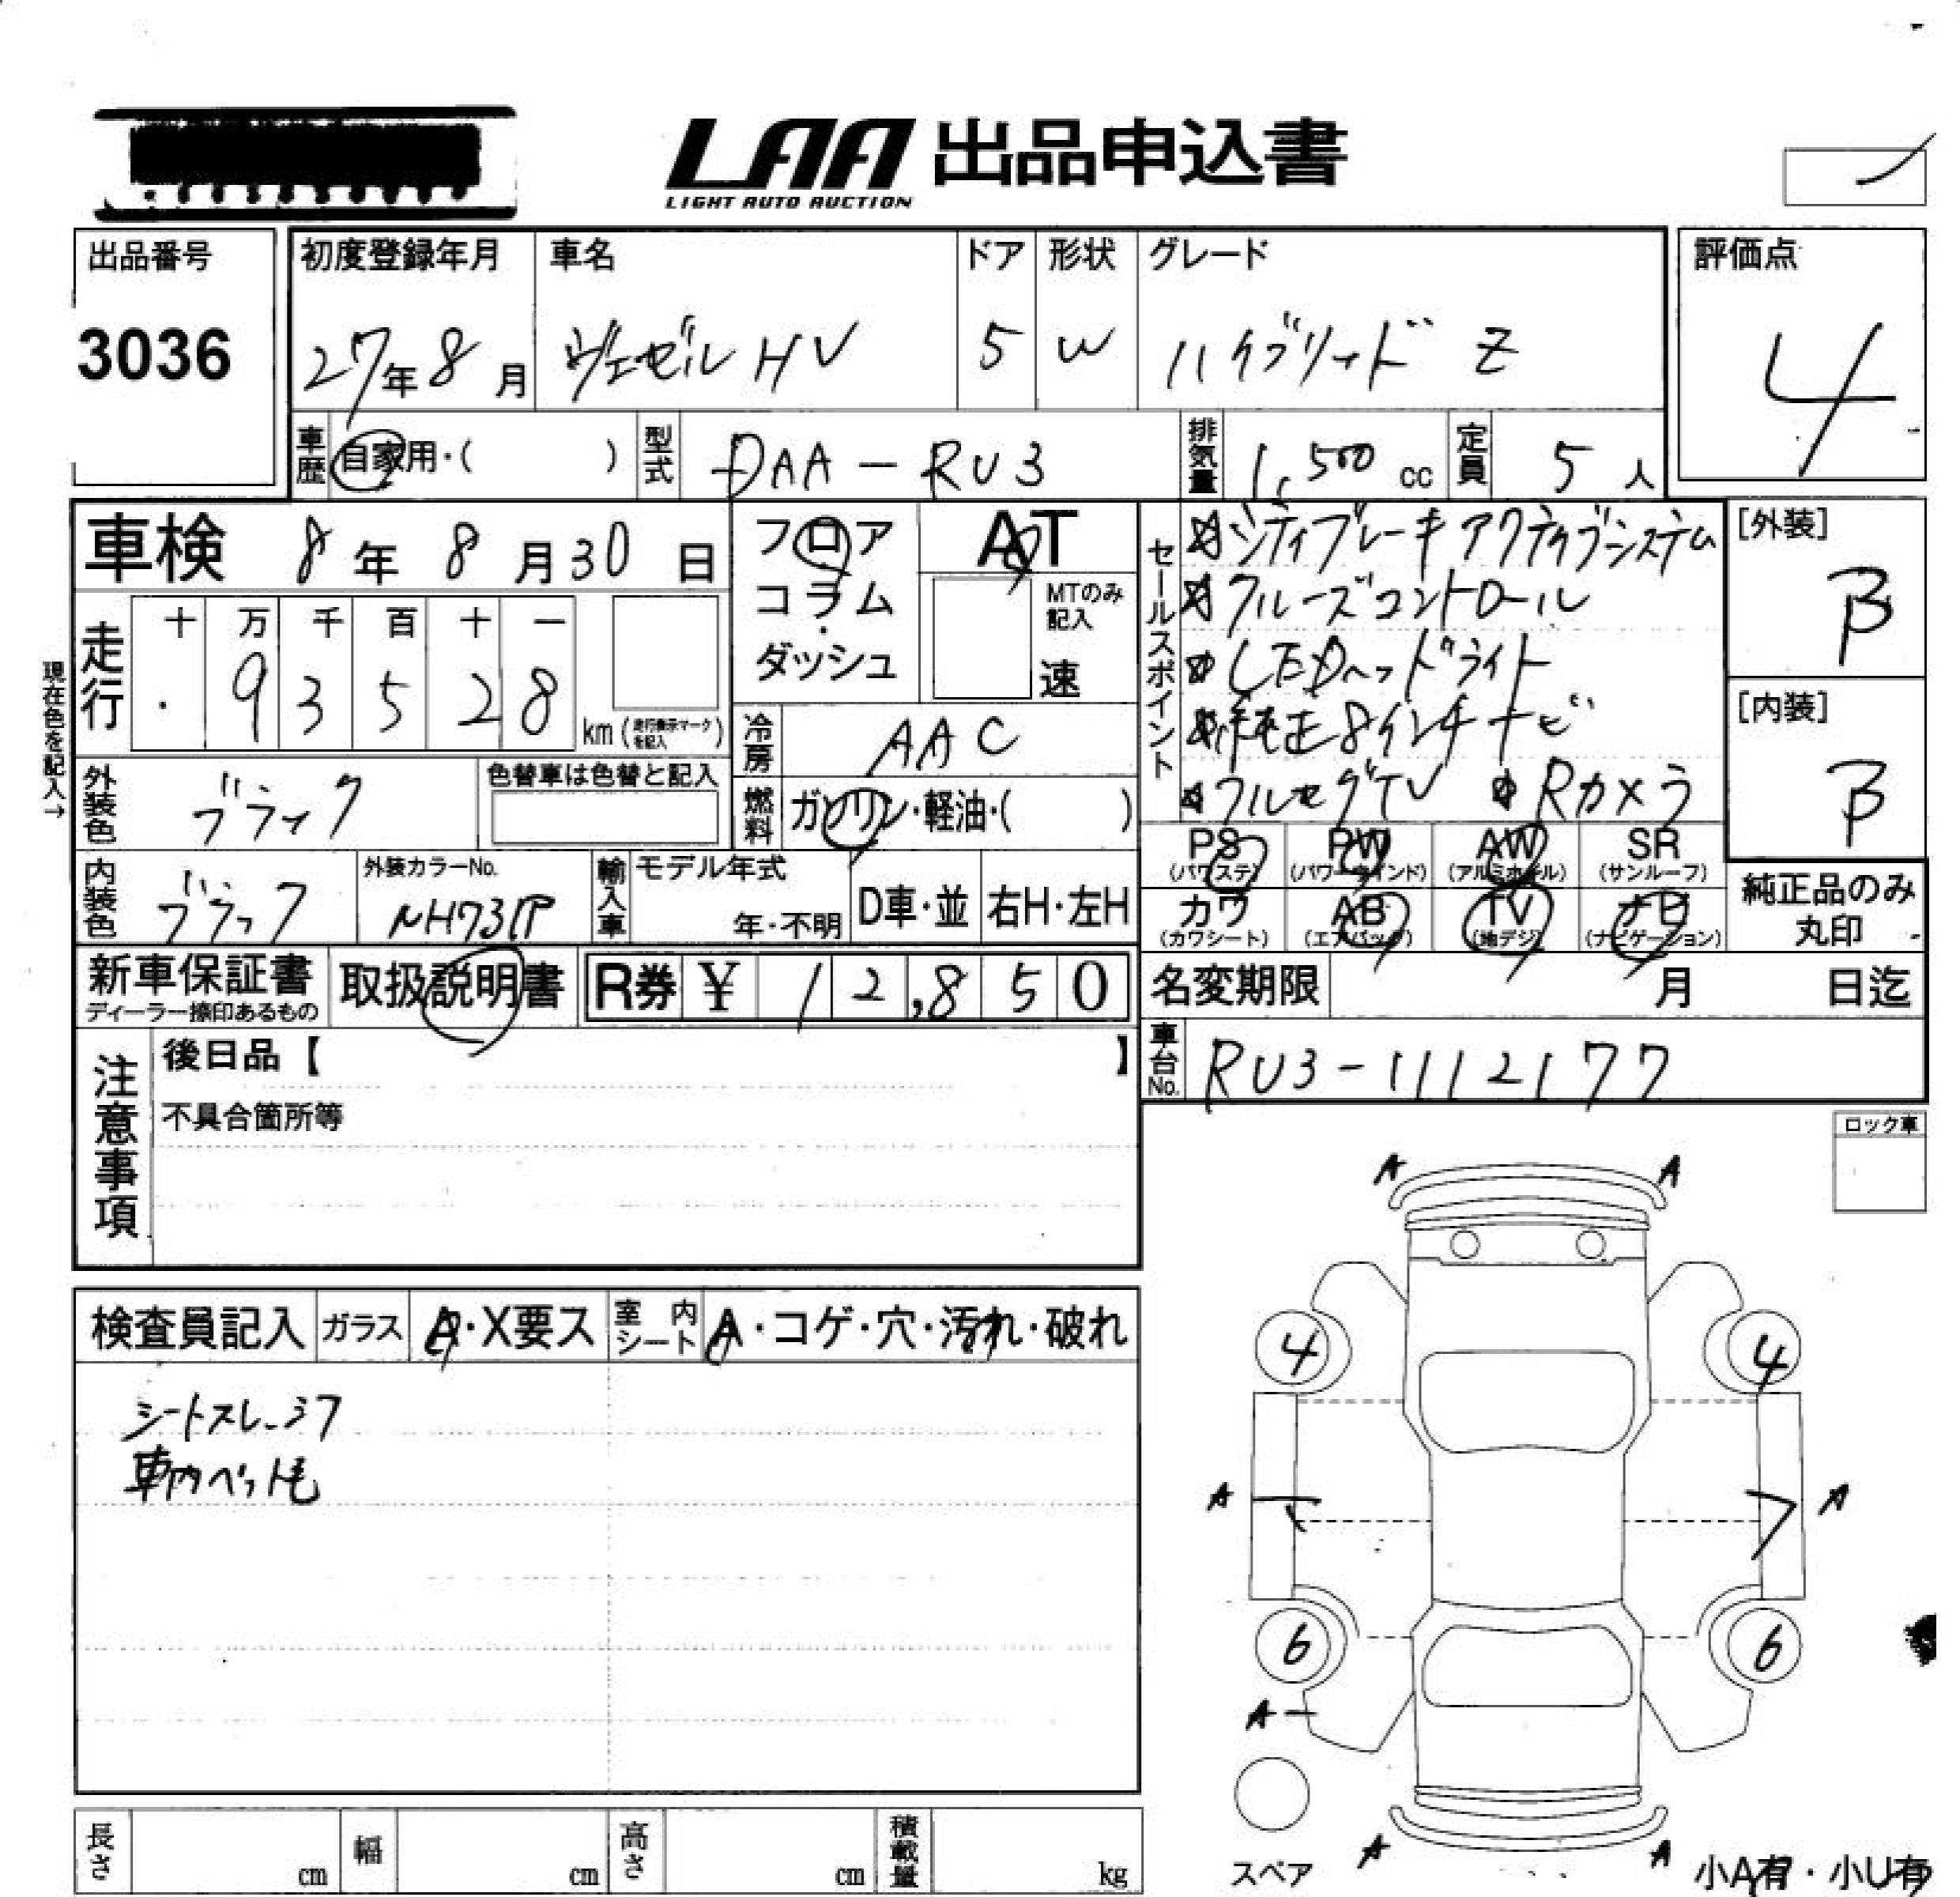 LAA 出品申込書
LIGHT AUTO AUCTION
出品番号 初度登録年月 車名 ドア 形状 グレード 評価点
3036 27年8月 ヴェゼルHV 5 W ハイブリッド Z 4
車歴 自家用・( ) 型式 DAA-RU3 排気量 1,500 cc 定員 5 人
車検 8年8月30日 フロア コラム・ダッシュ AT MTのみ記入 速
セールスポイント
☆シティブレーキアクティブシステム
☆クルーズコントロール
☆LEDヘッドライト
☆純正8インチナビ
☆フルセグTV ☆Rカメラ
[外装] B
[内装] B
現在色を記入→
走行 十 万 千 百 十 一
. 9 3 5 2 8 km (走行表示マークを記入)
冷房 AAC
外装色 ブラック 色替車は色替と記入 燃料 ガソリン・軽油・( )
PS (パワステ) PW (パワーウインド) AW (アルミホイル) SR (サンルーフ)
カワ (カワシート) AB (エアバッグ) TV (地デジ) ナビ (ナビゲーション) 純正品のみ丸印
内装色 ブラック 外装カラーNo. NH731P 輸入車 モデル年式 年・不明 D車・並 右H・左H
新車保証書 ディーラー捺印あるもの 取扱説明書 R券 ¥ 12,850 名変期限 月 日迄
注意事項 後日品【 】
不具合箇所等
車台No. RU3-1112177
ロック車
検査員記入 ガラス A・X要ス 室内シート A・コゲ・穴・汚れ・破れ
シートスレ、シワ
車内ペット毛
A A
4 4
A A
6 6
A
スペア
A A
小A有・小U有
長さ cm 幅 cm 高さ cm 積載量 kg